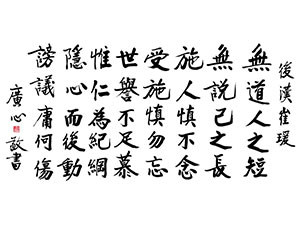 後漢崔瑗
無道人之短
無說己之長
施人慎不念
受施慎勿忘
世譽不足慕
惟仁為紀綱
隱心而後動
謗議庸何傷
廣心
敬書